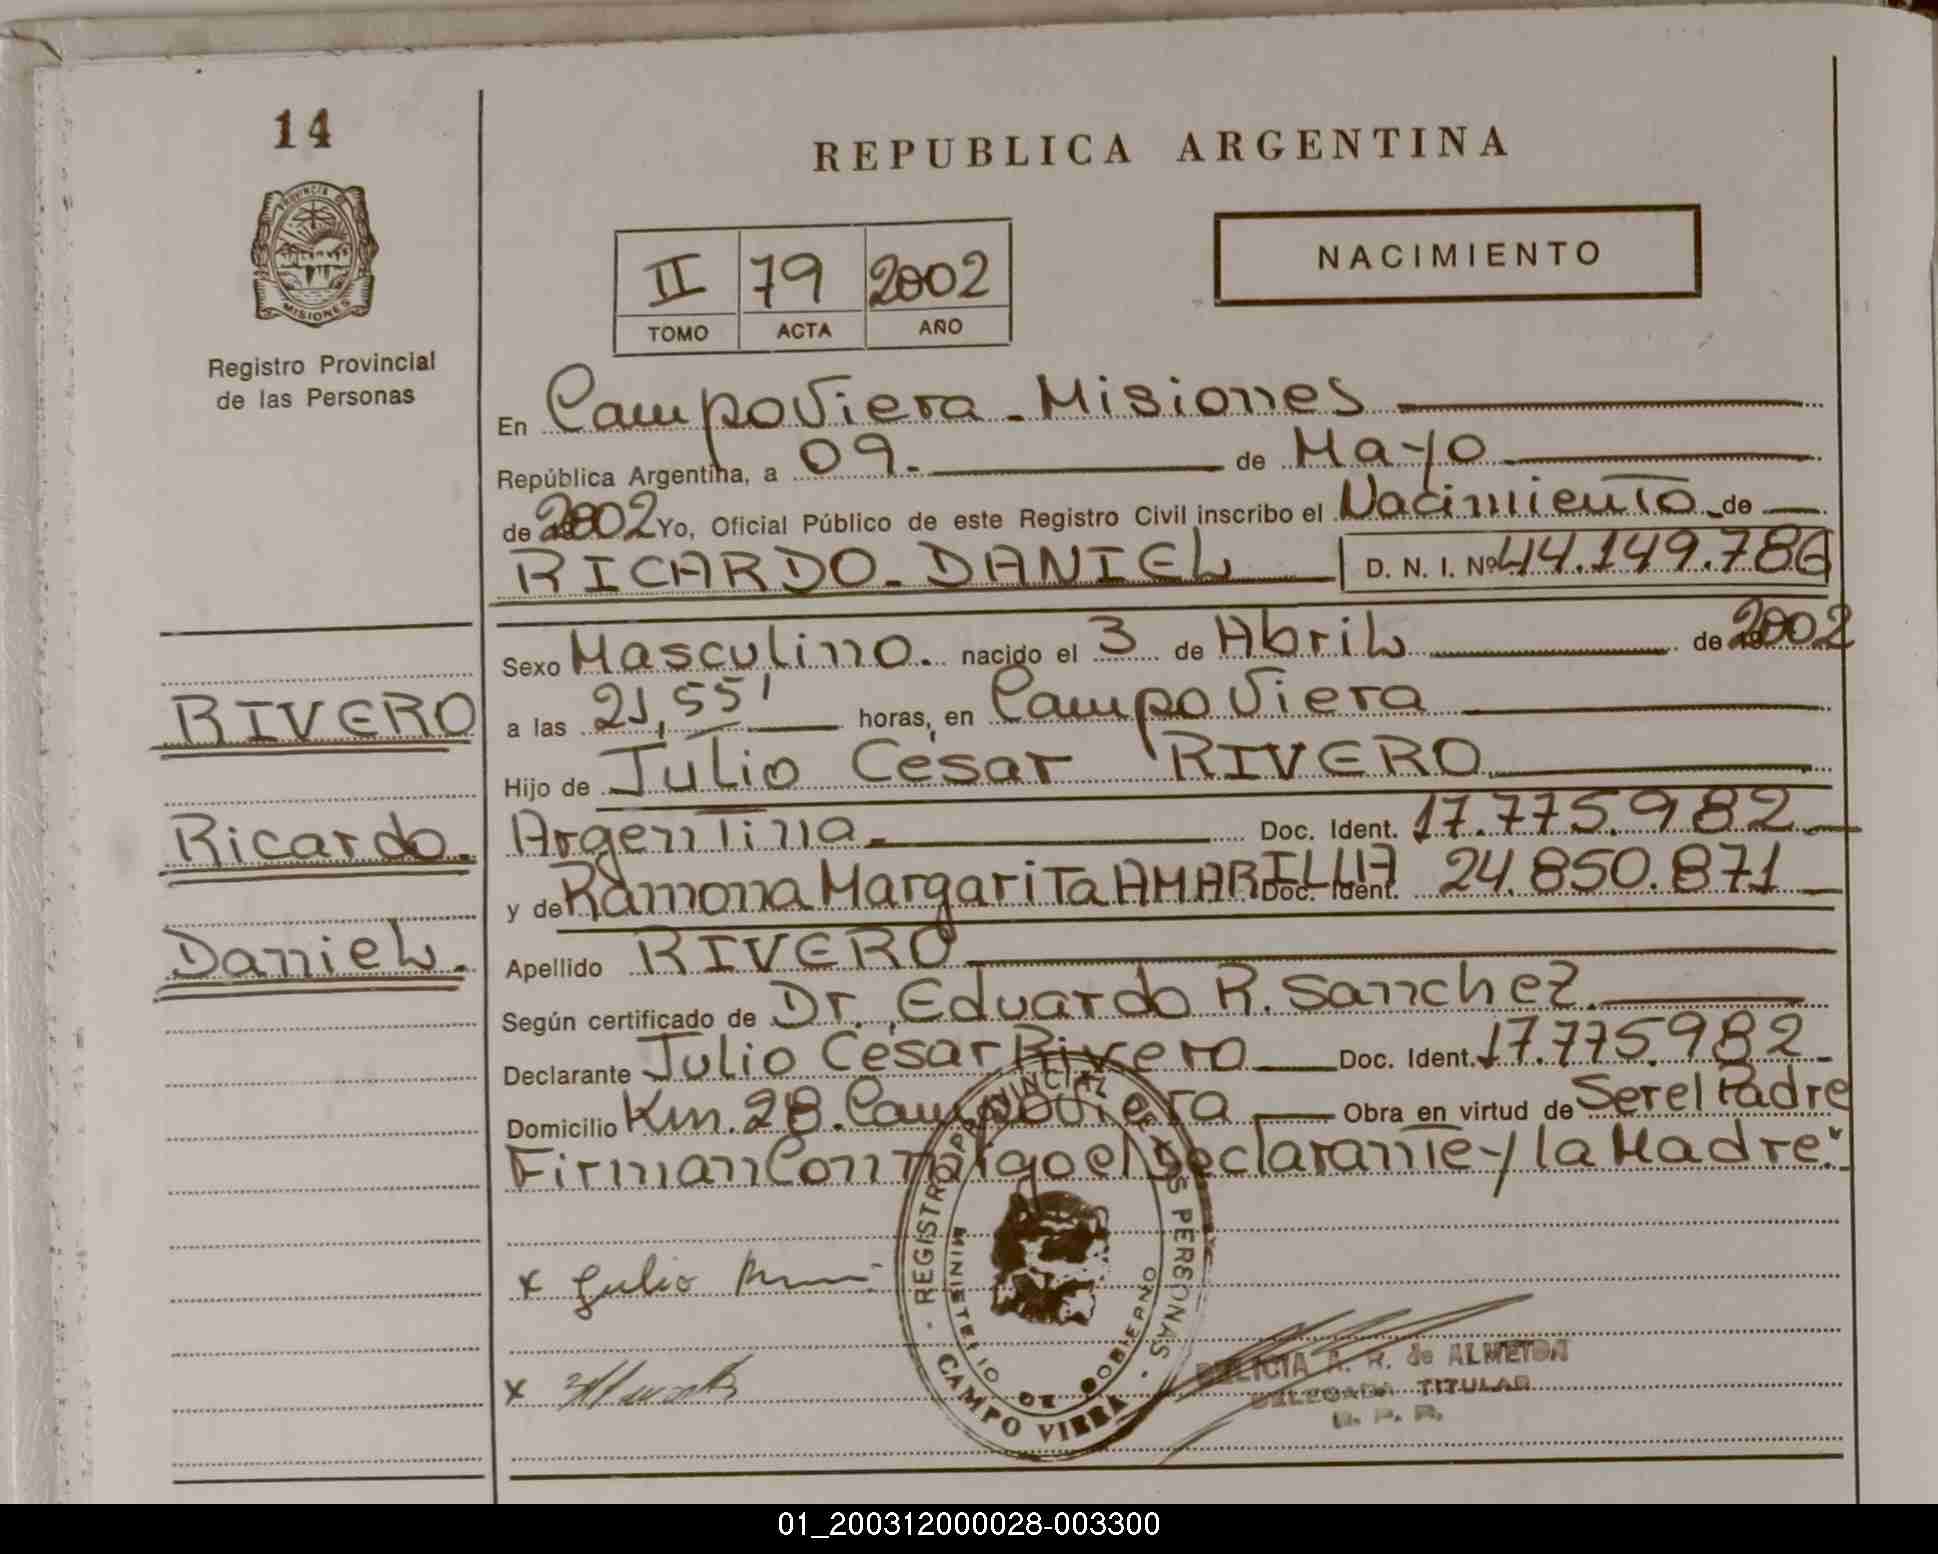 14
PROVINCIA DE
MISIONES
Registro Provincial
de las Personas
RIVERO
Ricardo.
Daniel.
REPUBLICA ARGENTINA
II 79 2002
TOMO ACTA AÑO
NACIMIENTO
En Campo Viera - Misiones
República Argentina, a 09. de Mayo
de 2002 Yo, Oficial Público de este Registro Civil inscribo el Nacimiento de
RICARDO - DANIEL D. N. I. Nº 44.149.786
Sexo Masculino. nacido el 3 de Abril de 2002
a las 21,55' horas, en Campo Viera
Hijo de Julio César RIVERO
Argentina Doc. Ident. 17.775.982
y de Ramona Margarita AMARILLA Doc. Ident. 24.850.871
Apellido RIVERO
Según certificado de Dr. Eduardo R. Sanchez
Declarante Julio César Rivero Doc. Ident. 17.775.982
Domicilio Km. 28. Campo Viera Obra en virtud de Ser el Padre
Firman Conmigo el Declarante y la Madre."
REGISTRO PROVINCIAL DE LAS PERSONAS
MINISTERIO DE GOBIERNO
CAMPO VIERA
x Julio
x
DELICIA A. R. de ALMEIDA
DELEGADA TITULAR
R. P. P.
01_200312000028-003300